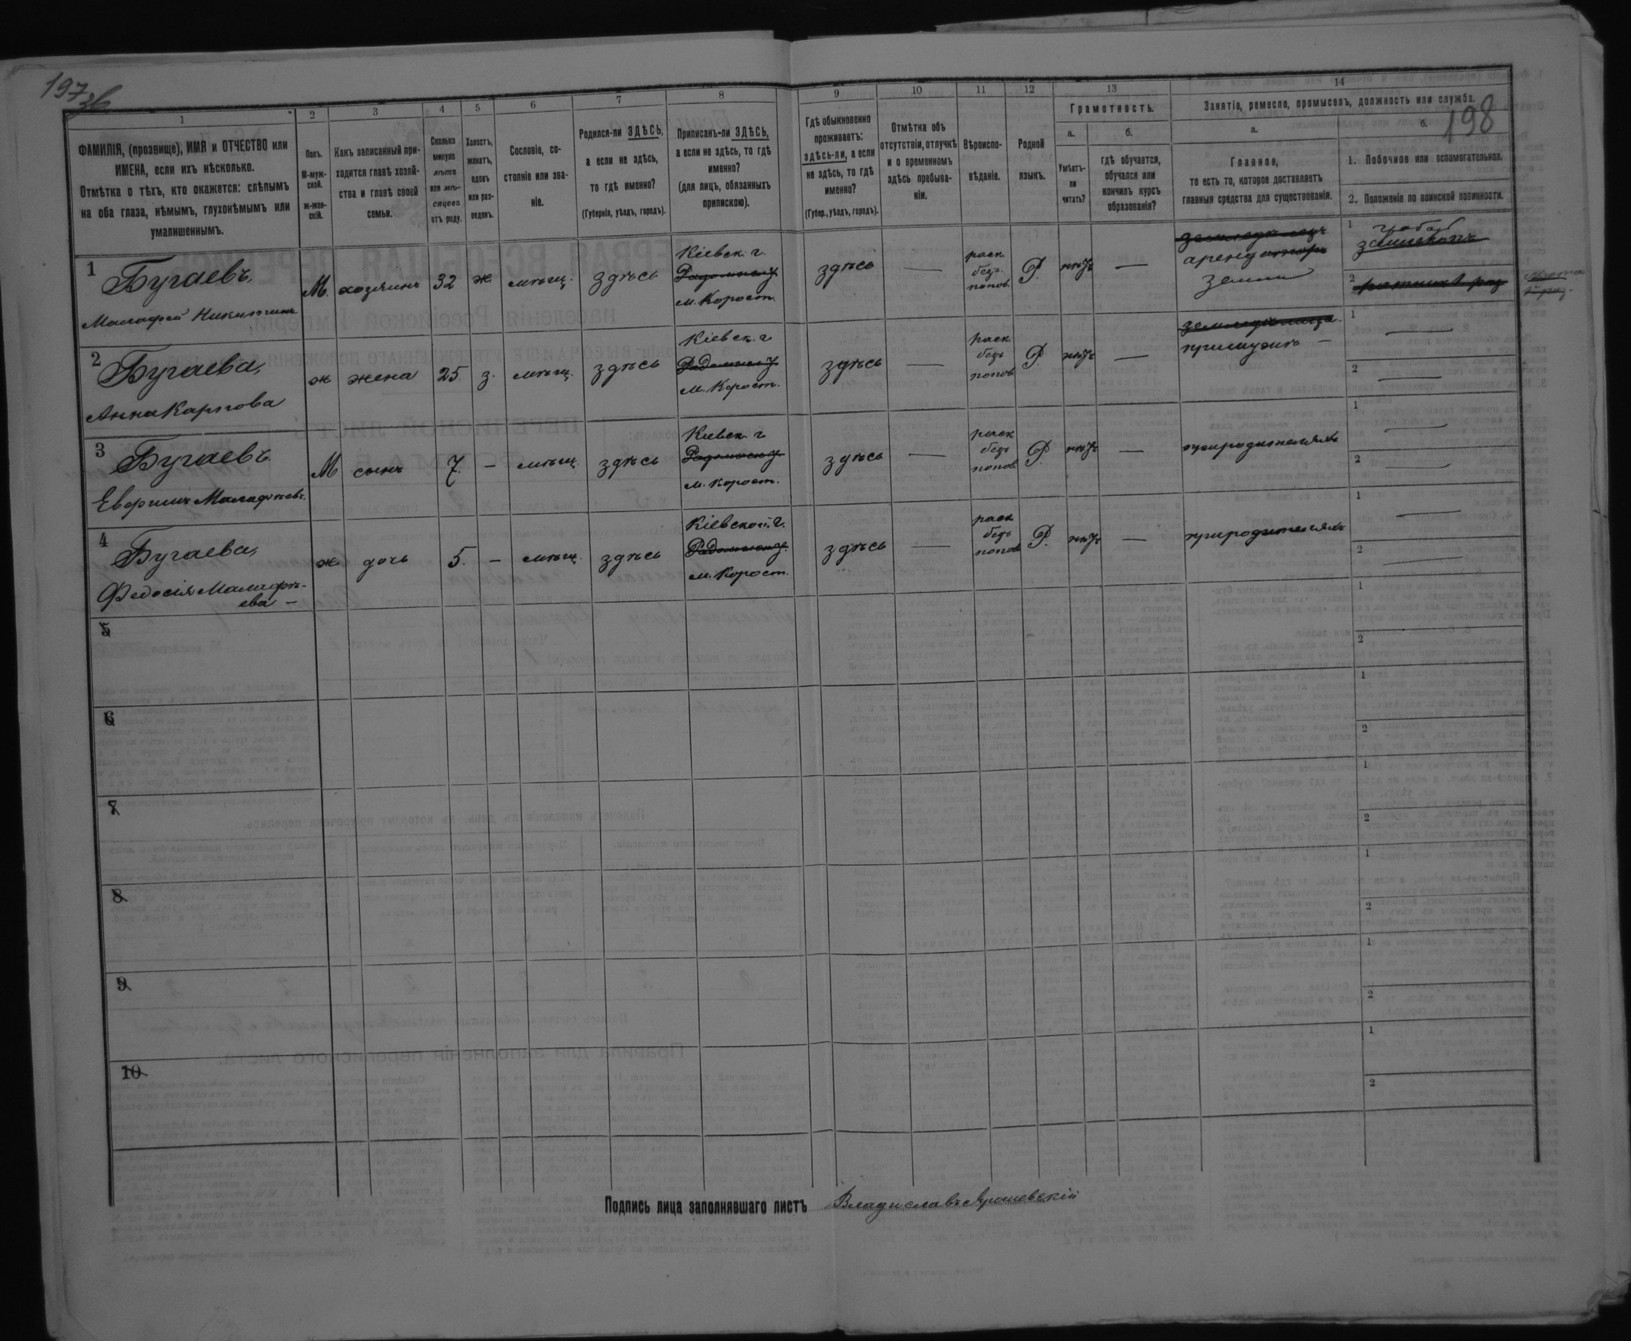 197 об
198
1
2
3
4
5
6
7
8
9
10
11
12
13
14
ФАМИЛІЯ, (прозвище), ИМЯ и ОТЧЕСТВО или
ИМЕНА, если ихъ нѣсколько.
Отмѣтка о тѣхъ, кто окажется: слѣпымъ
на оба глаза, нѣмымъ, глухонѣмымъ или
умалишеннымъ.
Полъ.
М-муж-
ской.
Ж-жен-
скій.
Какъ записанный при-
ходится главѣ хозяй-
ства и главѣ своей
семьи.
Сколько
минуло
лѣтъ
или мѣ-
сяцевъ
отъ роду.
Холостъ,
женатъ,
вдовъ
или раз-
веденъ.
Сословіе, со-
стояніе или зва-
ніе.
Родился-ли ЗДѢСЬ,
а если не здѣсь,
то гдѣ именно?
(Губернія, уѣздъ, городъ).
Приписанъ-ли ЗДѢСЬ,
а если не здѣсь, то гдѣ
именно?
(для лицъ, обязанныхъ
припискою).
Гдѣ обыкновенно
проживаетъ:
здѣсь-ли, а если
не здѣсь, то гдѣ
именно?
(Губер., уѣздъ, городъ).
Отмѣтка объ
отсутствіи, отлучкѣ
и о временномъ
здѣсь пребыва-
ніи.
Вѣроиспо-
вѣданіе.
Родной
языкъ.
Грамотность.
а.
Умѣетъ-
ли
читать?
б.
гдѣ обучается,
обучался или
кончилъ курсъ
образованія?
Занятіе, ремесло, промыселъ, должность или служба.
а.
Главное,
то есть то, которое доставляетъ
главныя средства для существованія.
б.
1. Побочное или вспомогательное.
2. Положеніе по воинской повинности.
1
Бугаевъ
Малафей Никитинъ
М.
хозяинъ
32
ж
мѣщ.
здѣсь
Кіевск. г
Радомысл у
м. Корост.
здѣсь
—
раск
безъ
попов
Р.
нѣтъ
—
земледѣлецъ
арендаторъ
земли
1
2
2
Бугаева,
Анна Карпова
ж
жена
25
з.
мѣщ.
здѣсь
Кіевск. г
Радомысл у
м. Корост.
здѣсь
—
раск
безъ
попов
Р.
нѣтъ
—
при мужѣ —
1 —
2 —
3
Бугаевъ
М
сынъ
7
—
мѣщ
здѣсь
Кіевск. г
Радомысл у
м. Корост.
здѣсь
—
раск
безъ
попов
Р.
нѣтъ
—
при родителяхъ
1 —
2 —
4
Бугаева,
Федосія Малафѣ-
ева —
ж
дочь
5.
—
мѣщ.
здѣсь
Кіевской г.
Радомысл у.
м. Корост.
здѣсь
—
раск
безъ
попов
Р.
нѣтъ
—
при родителяхъ
1 —
2 —
5
1
2
6
1
2
7
1
2
8
1
2
9
1
2
10
1
2
Подпись лица заполнявшаго листъ Владиславъ Ярошевскій